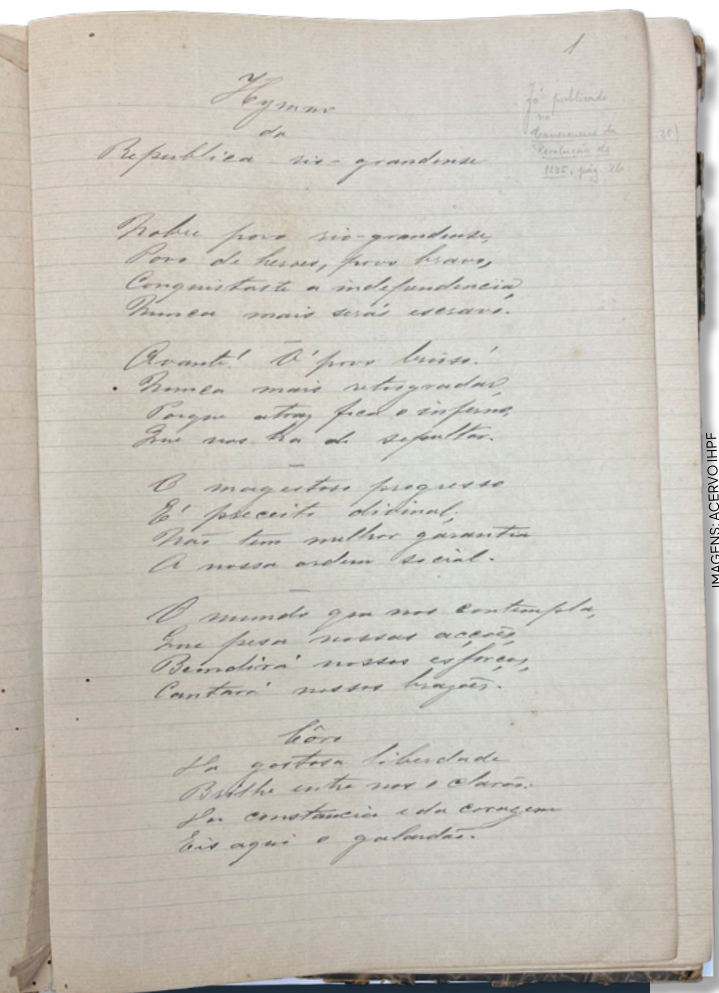 1
Hymno
da
Republica rio-grandense
Já publicado
no
Cancioneiro da
Revolução de
1835, pág. 26
Nobre povo rio-grandense,
Povo de heroes, povo bravo,
Conquistaste a independencia,
Nunca mais serás escravo.
Avante! Ó povo brioso!
Nunca mais retrogradar,
Porque atraz fica o inferno,
Que nos ha de sepultar.
O magestoso progresso
É preceito divinal;
Não tem melhor garantia
A nossa ordem social.
O mundo que nos contempla,
Que pesa nossas acções,
Bemdirá nossos esforços,
Cantará nossos brazões.
Côro
Da gostosa liberdade
Brilhe entre nos o clarão:
Da constancia e da coragem
Eis aqui o galardão.
IMAGENS: ACERVO IHPF